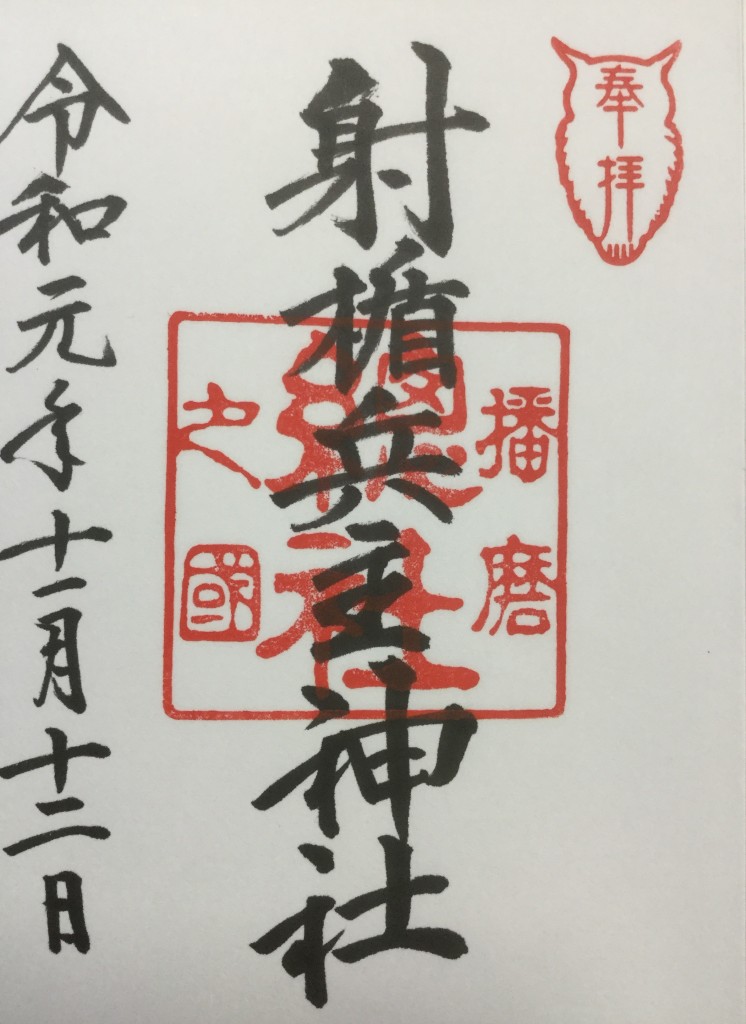 奉拝
射楯兵主神社
播磨
總社
之國
令和元年十一月十二日